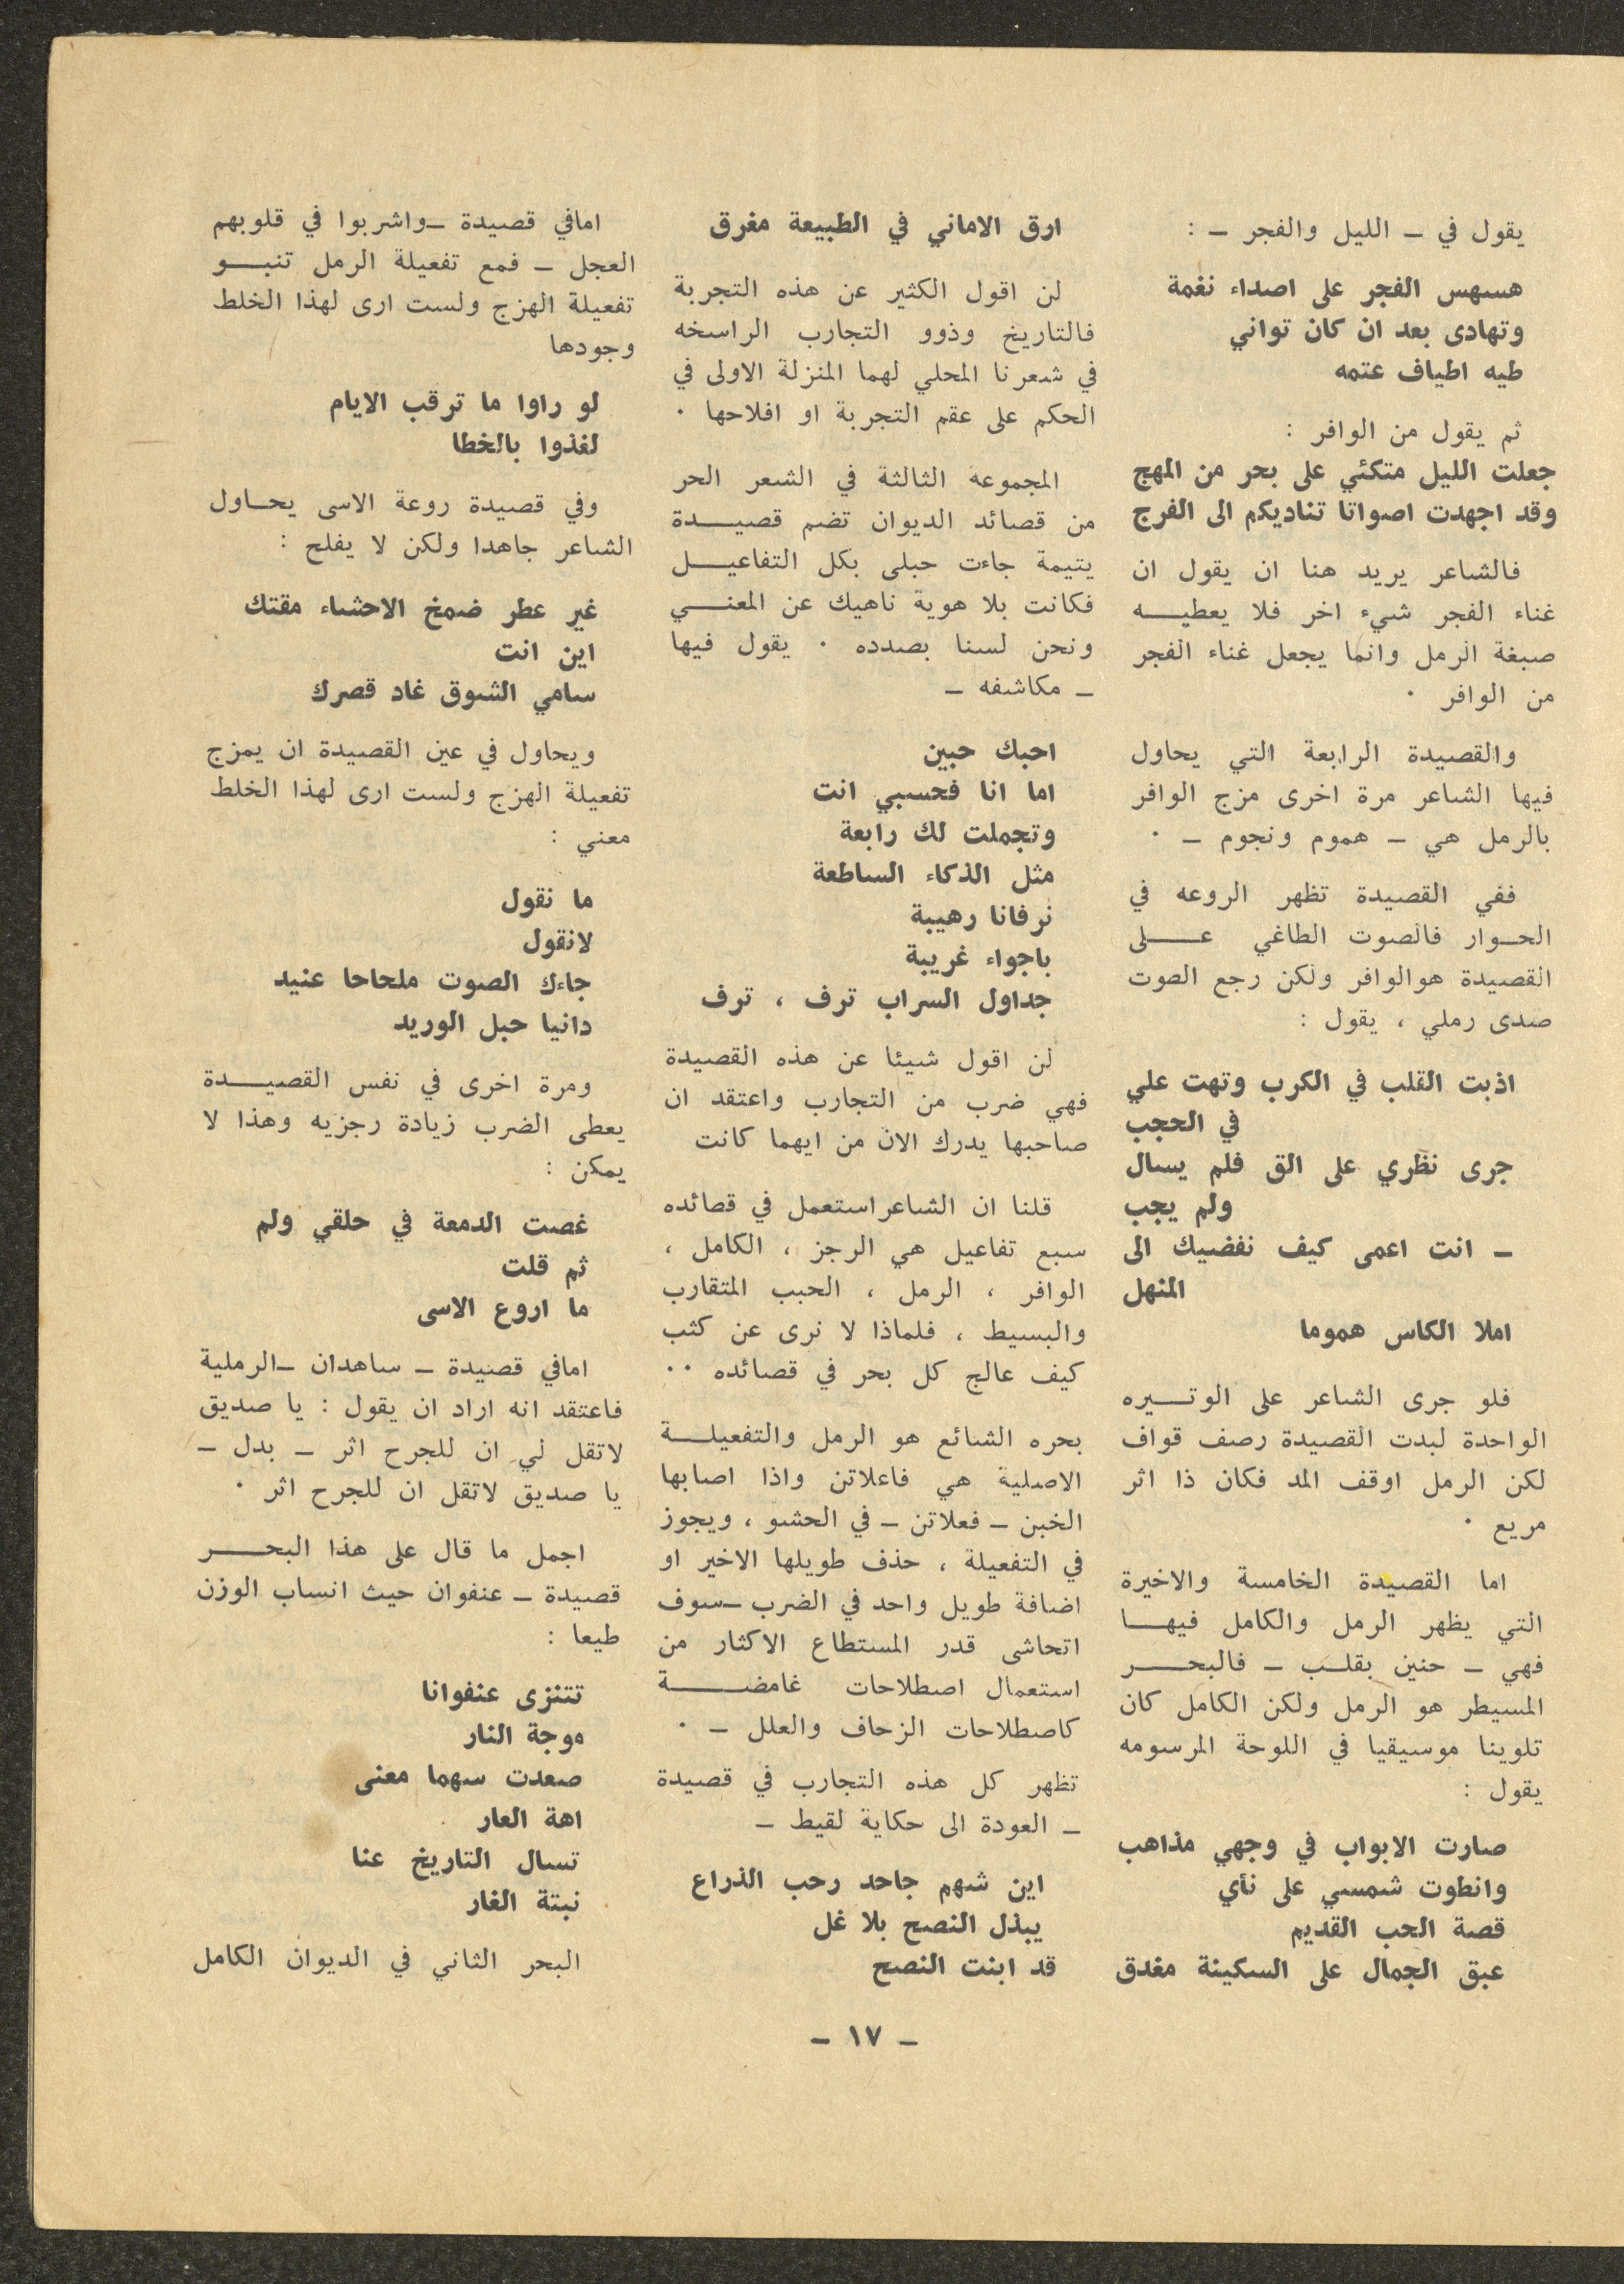 يقول في ـ الليل والفجر ـ :
هسهس الفجر على اصداء نغمة
وتهادى بعد ان كان تواني
طيه اطياف عتمه
ثم يقول من الوافر :
جعلت الليل متكئي على بحر من المهج
وقد اجهدت اصواتا تناديكم الى الفرج
فالشاعر يريد هنا ان يقول ان
غناء الفجر شيء اخر فلا يعطيه
صبغة الرمل وانما يجعل غناء الفجر
من الوافر .
والقصيدة الرابعة التي يحاول
فيها الشاعر مرة اخرى مزج الوافر
بالرمل هي ـ هموم ونجوم ـ .
ففي القصيدة تظهر الروعه في
الحوار فالصوت الطاغي على
القصيدة هوالوافر ولكن رجع الصوت
صدى رملي ، يقول :
اذبت القلب في الكرب وتهت علي
في الحجب
جرى نظري على الق فلم يسال
ولم يجب
ـ انت اعمى كيف نفضيك الى
المنهل
املا الكاس هموما
فلو جرى الشاعر على الوتيره
الواحدة لبدت القصيدة رصف قواف
لكن الرمل اوقف المد فكان ذا اثر
مريع .
اما القصيدة الخامسة والاخيرة
التي يظهر الرمل والكامل فيها
فهي ـ حنين بقلب ـ فالبحر
المسيطر هو الرمل ولكن الكامل كان
تلوينا موسيقيا في اللوحة المرسومه
يقول :
صارت الابواب في وجهي مذاهب
وانطوت شمسي على نأي
قصة الحب القديم
عبق الجمال على السكينة مغدق
ارق الاماني في الطبيعة مغرق
لن اقول الكثير عن هذه التجربة
فالتاريخ وذوو التجارب الراسخه
في شعرنا المحلي لهما المنزلة الاولى في
الحكم على عقم التجربة او افلاحها .
المجموعة الثالثة في الشعر الحر
من قصائد الديوان تضم قصيدة
يتيمة جاءت حبلى بكل التفاعيل
فكانت بلا هوية ناهيك عن المعني
ونحن لسنا بصدده . يقول فيها
ـ مكاشفه ـ
احبك حبين
اما انا فحسبي انت
وتجملت لك رابعة
مثل الذكاء الساطعة
نرفانا رهيبة
باجواء غريبة
جداول السراب ترف ، ترف
لن اقول شيئا عن هذه القصيدة
فهي ضرب من التجارب واعتقد ان
صاحبها يدرك الان من ايهما كانت
قلنا ان الشاعراستعمل في قصائده
سبع تفاعيل هي الرجز ، الكامل ،
الوافر ، الرمل ، الحبب المتقارب
والبسيط ، فلماذا لا نرى عن كثب
كيف عالج كل بحر في قصائده ..
بحره الشائع هو الرمل والتفعيلة
الاصلية هي فاعلاتن واذا اصابها
الخبن ـ فعلاتن ـ في الحشو ، ويجوز
في التفعيلة ، حذف طويلها الاخير او
اضافة طويل واحد في الضرب ـسوف
اتحاشى قدر المستطاع الاكثار من
استعمال اصطلاحات غامضة
كاصطلاحات الزحاف والعلل ـ .
تظهر كل هذه التجارب في قصيدة
ـ العودة الى حكاية لقيط ـ
اين شهم جاحد رحب الذراع
يبذل النصح بلا غل
قد ابنت النصح
امافي قصيدة ـواشربوا في قلوبهم
العجل ـ فمع تفعيلة الرمل تنبو
تفعيلة الهزج ولست ارى لهذا الخلط
وجودها
لو راوا ما ترقب الايام
لغذوا بالخطا
وفي قصيدة روعة الاسى يحاول
الشاعر جاهدا ولكن لا يفلح :
غير عطر ضمخ الاحشاء مقتك
اين انت
سامي الشوق غاد قصرك
ويحاول في عين القصيدة ان يمزج
تفعيلة الهزج ولست ارى لهذا الخلط
معني :
ما نقول
لانقول
جاءك الصوت ملحاحا عنيد
دانيا حبل الوريد
ومرة اخرى في نفس القصيدة
يعطى الضرب زيادة رجزيه وهذا لا
يمكن :
غصت الدمعة في حلقي ولم
ثم قلت
ما اروع الاسى
امافي قصيدة ـ ساهدان ـالرملية
فاعتقد انه اراد ان يقول : يا صديق
لاتقل لي ان للجرح اثر ـ بدل ـ
يا صديق لاتقل ان للجرح اثر .
اجمل ما قال على هذا البحر
قصيدة ـ عنفوان حيث انساب الوزن
طيعا :
تتنزى عنفوانا
موجة النار
صعدت سهما معنى
اهة العار
تسال التاريخ عنا
نبتة الغار
البحر الثاني في الديوان الكامل
ـ ١٧ ـ